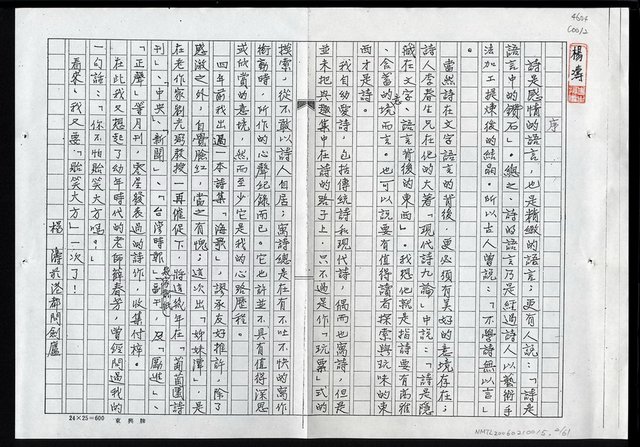 4604
C0012
楊濤
序
詩是感情的語言,也是精緻的語言;更有人說:「詩是
語言中的鑽石」。總之、詩的語言乃是經過詩人以藝術手
法加工提煉後的結晶。所以古人曾說:「不學詩無以言」
。
當然詩在文字語言的背後,更必須有美好的意境存在;
詩人李春生兄在他的大著「現代詩九論」中說:「詩是隱
藏在文字、語言背後的東西」。我想他就是指詩要有高雅
、含蓄的意境而言。也可以說要有值得讀者探索與玩味的東
西才是詩。
我自幼愛詩,包括傳統詩和現代詩,偶而也寫詩,但是
並未把興趣集中在詩的路子上,只不過是作「玩票」式的
摸索,從不敢以詩人自居;寫詩總是在有不吐不快的寫作
衝動時,所作的心聲紀錄而已。它也許並不具有值得深思
或欣賞的意境,然而至少它是我的心路歷程。
四年前我出過一本詩集「海歌」,謬承友好推許,除了
感激之外,自覺臉紅,當之有愧;這次出「姊妹潭」,是
在老作家劉光炎教授一再催促下,將這幾年在「葡萄園詩
刊」、「中央」、「新聞」、「台灣時報」副刊、及「鳳進」、
「正聲」等月刊、零星發表過的詩作,收集付梓。
在此我又想起了幼年時代的老師薛春芳,曾經問過我的
一句話:「你不怕貽笑大方嗎?」
看來,我又要「貽笑大方」一次了!
楊濤於港都問劍廬
24×25=600
NMTL20060210015